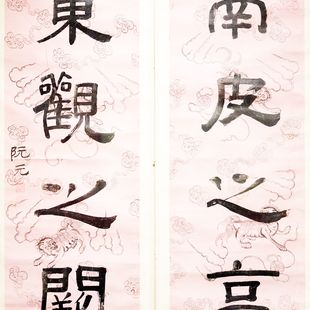 南皮之高
東觀之閣
阮元